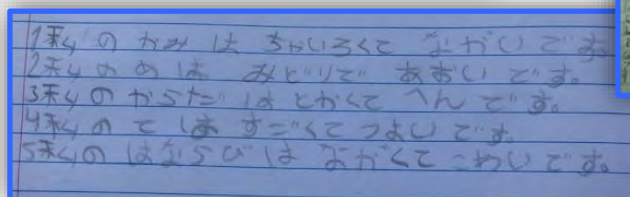 1私の かみ は ちゃいろくて ながい です。
2私の めは みどりで あおい です。
3私の からだ はとかくて へん です。
4私の て は すごくて つよい です。
5私の はならび は ながくて こわい です。